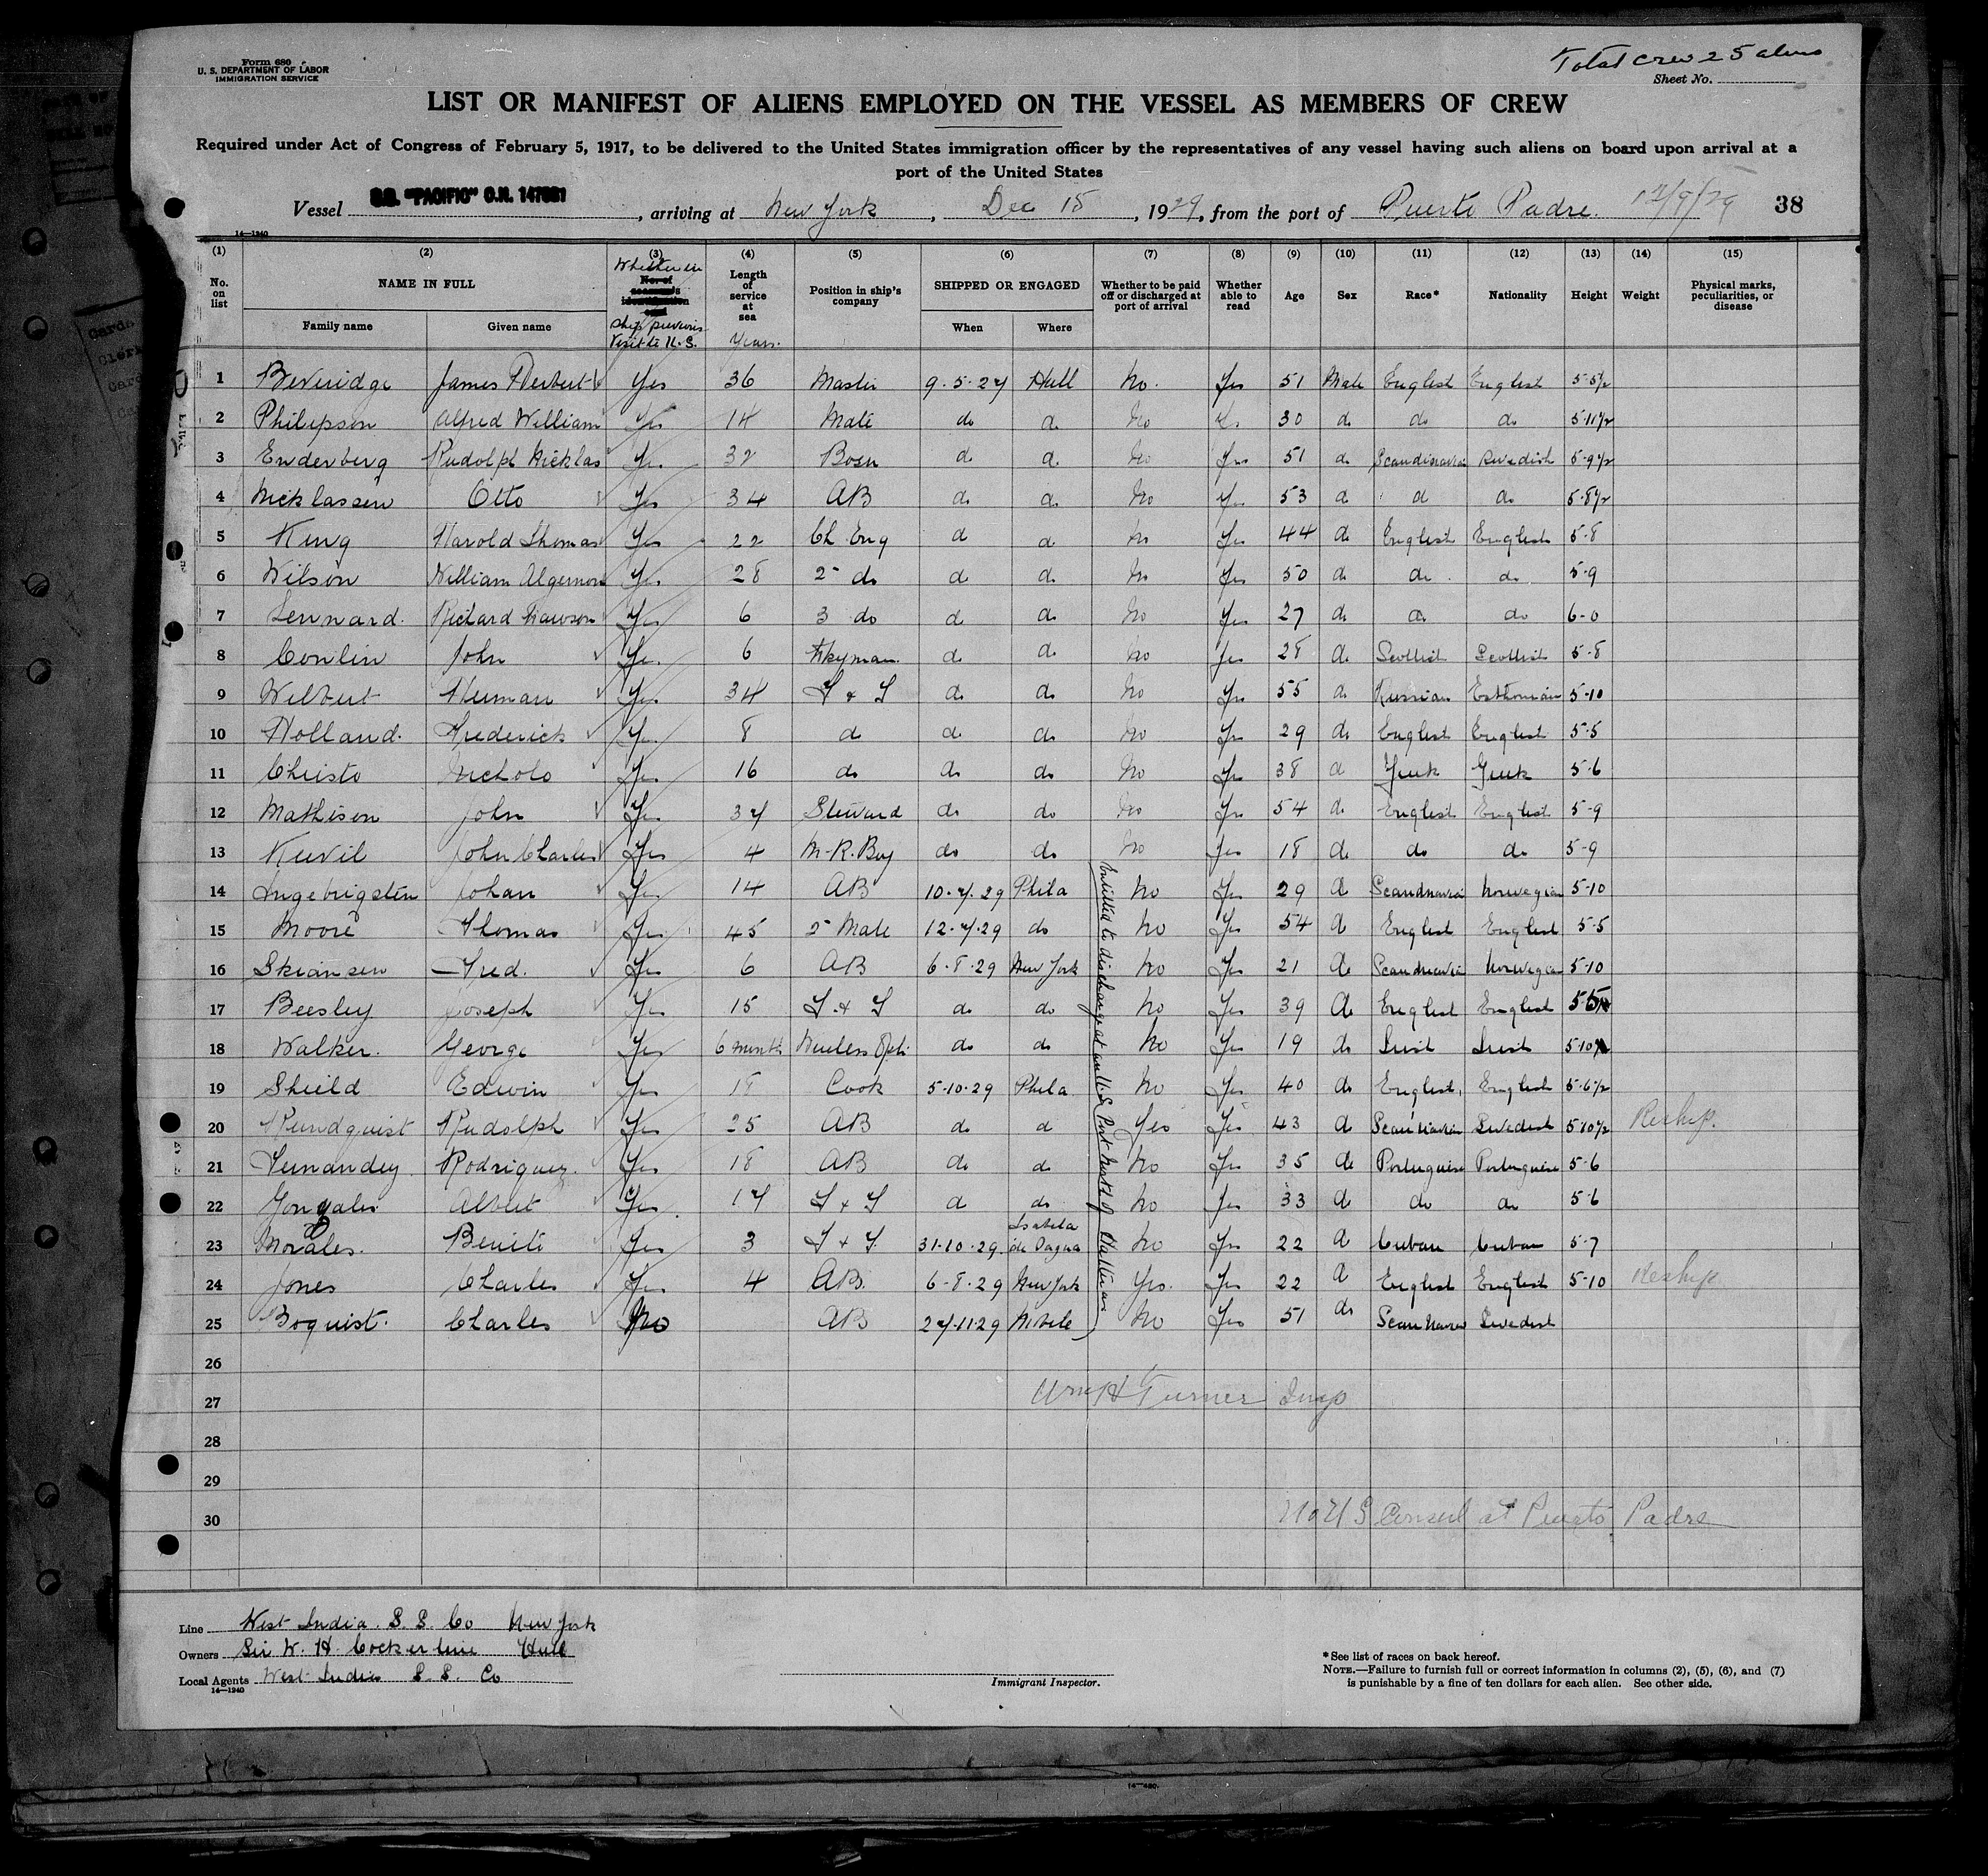 Form 680
U. S. DEPARTMENT OF LABOR
IMMIGRATION SERVICE
Total crew 25 aliens
Sheet No.
LIST OR MANIFEST OF ALIENS EMPLOYED ON THE VESSEL AS MEMBERS OF CREW
Required under Act of Congress of February 5, 1917, to be delivered to the United States immigration officer by the representatives of any vessel having such aliens on board upon arrival at a
port of the United States
Vessel S.S. "PACIFIC" O.N. 147881, arriving at New York, Dec 15, 1929, from the port of Puerto Padre. 12/9/29 38
14—1240
(1) (2) (3) (4) (5) (6) (7) (8) (9) (10) (11) (12) (13) (14) (15)
No. on list NAME IN FULL Whether in Ship previous Visit to U.S. Length of service at sea Years. Position in ship's company SHIPPED OR ENGAGED Whether to be paid off or discharged at port of arrival Whether able to read Age Sex Race* Nationality Height Weight Physical marks, peculiarities, or disease
Family name Given name When Where
1 Beveridge James Herbert Yes 36 Master 9.5.27 Hull No. Yes 51 Male English English 5-5½
2 Philipson Alfred William Yes 14 Mate do d. No Yes 30 d. do do 5-11½
3 Enderberg Rudolph Nicklas Yes 32 Bosn d. d. No Yes 51 d. Scandinavia Swedish 5-9½
4 Nicklassen Otto Yes 34 AB d. d. No Yes 53 d d do 5-8½
5 King Harold Thomas Yes 22 Ch Eng d d No Yes 44 d. English English 5-8
6 Wilson William Algernon Yes 28 2- do d d. No Yes 50 d. do. do 5-9
7 Lennard. Richard Yes 6 3 do d d. No Yes 27 d. do do 6-0
8 Conlin John Yes. 6 Dkyman d. d. No Yes 28 d. Scottish Scottish 5-8
9 Herman Yes 34 F & T d. do No Yes 55 d. Russian Esthonian 5-10
10 Holland. Frederick Yes 8 d d. do No Yes 29 d. English English 5-5
11 Christo Nicholo Yes 16 do do do No Yes 38 d Greek Greek 5-6
12 Mathison John Yes 37 Steward do do No Yes 54 d. English English 5-9
13 John Charles Yes 4 M.R. Boy do do No Yes 18 d. do do 5-9
14 Ingebrigsten Johan Yes 14 AB 10.7.29 Phila No Yes 29 d Scandinavia Norwegian 5-10
15 Moore Thomas Yes 45 2- Mate 12.7.29 do No Yes 54 d English English 5-5
16 Fred. Yes 6 AB 6.8.29 New York No Yes 21 d. Scandinavia Norwegian 5-10
17 Beesley Joseph Yes 15 F & T do do No Yes 39 d. English English
18 Walker. George Yes 6 months Wireless Optr do do No Yes 19 do Irish Irish 5-10½
19 Shield Edwin Yes 18 Cook 5.10.29 Phila No Yes 40 do English English 5-6½
20 Rundquist Rudolph Yes 25 AB do d Yes Yes 43 d. Scandinavia Swedish 5-10½ Reship.
21 Fernandez Rodriguez. Yes 18 AB do do No Yes 35 do Portuguese Portuguese 5-6
22 Gonzales Albert Yes 17 F & T d do No Yes 33 d do do 5-6
23 Morales. Benito Yes 3 F & T. 31-10-29 Isabela de Sagua No Yes 22 d Cuban Cuban 5-7
24 Jones Charles Yes 4 AB. 6-8-29 New York Yes. Yes 22 d English English 5-10 Reship
25 Boquist. Charles No AB 27-11-29 Mobile No Yes 51 do Swedish
26
27 Wm H Turner Insp
28
29
30 No U S Consul at Puerto Padre
Line West India. S. S. Co New York
Owners Sir W. H. Cockerline Hull
Local Agents West India S. S. Co
14—1240
Immigrant Inspector.
* See list of races on back hereof.
NOTE.—Failure to furnish full or correct information in columns (2), (5), (6), and (7)
is punishable by a fine of ten dollars for each alien. See other side.